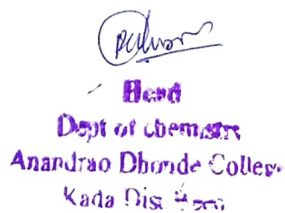 Head
Dept of chemistry
Anandrao Dhonde Colleg
Kada Dist